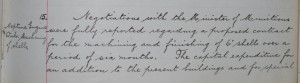 15.
Negotiations with the Minister of Munitions
were fully reported regarding a proposed contract
for the machining and finishing of 6" shells over a
period of six months. The capital expenditure for
an addition to the present buildings and for special
6" shells